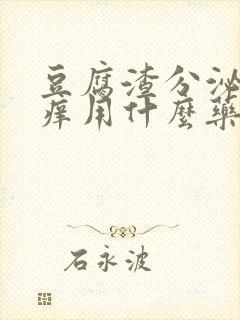 豆腐渣分泌
痒用什麽藥
石永波